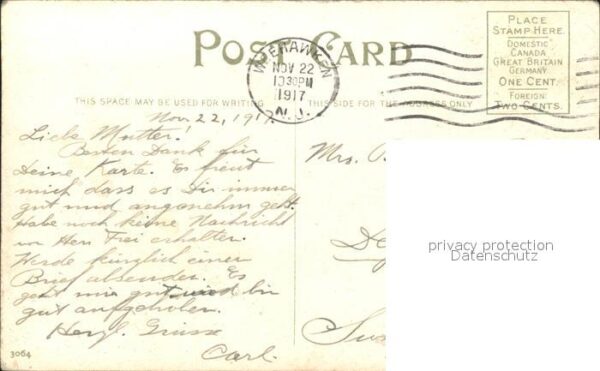 POST CARD
WEEHAWKEN
NOV 22
1030PM
1917
N.J.
PLACE
STAMP HERE.
DOMESTIC
CANADA
GREAT BRITAIN
GERMANY
ONE CENT.
FOREIGN
TWO CENTS.
THIS SPACE MAY BE USED FOR WRITING
THIS SIDE FOR THE ADDRESS ONLY
Nov 22, 1917
Liebe Mutter!
Besten Dank für
Deine Karte. Es freut
mich dass es Dir immer
gut und angenehm geht.
Habe noch keine Nachricht
von Herr Frei erhalten.
Werde kürzlich einen
Brief absenden. Es
geht mir gut und bin
gut aufgehoben.
Herzl. Grüsse
Carl.
Mrs.
3064
privacy protection
Datenschutz